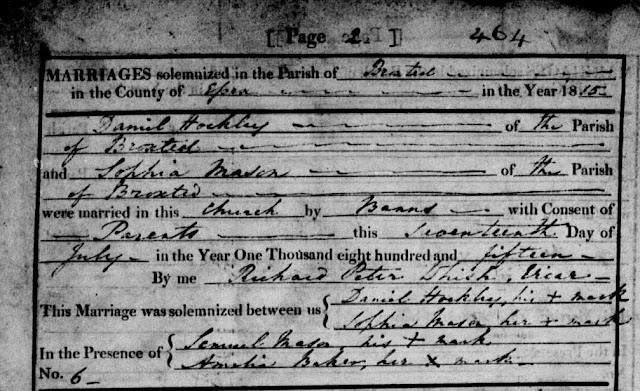 [[ Page 2 ] ] 464
MARRIAGES solemnized in the Parish of Broxted
in the County of Essex in the Year 1815
Daniel Hockley of the Parish
of Broxted
and Sophia Mason of the Parish
of Broxted
were married in this Church by Banns with Consent of
Parents this Seventeenth Day of
July in the Year One Thousand eight hundred and fifteen
By me Richard Peter Vicar
This Marriage was solemnized between us { Daniel Hockley, his + mark
Sophia Mason, her + mark
In the Presence of { Samuel Mason, his + mark
Amelia Baker, her x mark
No. 6